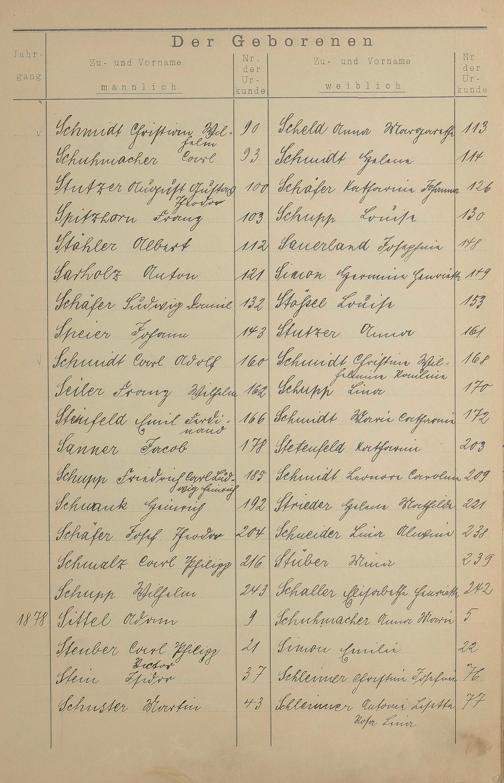 Der Geborenen
Jahrgang
Zu- und Vorname
männlich
Nr. der Urkunde
Zu- und Vorname
weiblich
Nr. der Urkunde
Schmidt Christian Wilhelm 90 Scheld Anna Margarethe 113
Schuhmacher Carl 93 Schmidt Helene 114
Stutzer August Gustav Theodor 100 Schäfer Katharina Johanna 126
Spitzhorn Franz 103 Schupp Louise 130
Stähler Albert 112 Sauerland Josephine 148
Sarholz Anton 121 Simon Hermine Henriette 149
Schäfer Ludwig Daniel 132 Louise 153
Speier Johann 143 Stutzer Anna 161
Schmidt Carl Adolf 160 Schmidt Christine Wilhelmine 168
Seiler Franz Wilhelm 162 Schupp Lina 170
Steinfeld Emil Ferdinand 166 Schmidt Marie Catharina 172
Sanner Jacob 178 Stetenfeld Katharina 203
Schupp Friedrich Carl Ludwig Heinrich 185 Schmidt Leonore Caroline 209
Schwank Heinrich 192 Strieder Helene Mathilde 221
Schäfer Josef Theodor 204 Schneider Lina 238
Schmalz Carl Philipp 216 Stüber Mina 239
Schupp Wilhelm 243 Schaller Elisabethe Henriette 242
1878 Sittel Adam 9 Schuhmacher Anna Marie 5
Steuber Carl Philipp Victor 21 Simon Emilie 22
Stein Isidor 37 Schleimer Christine Josefine 76
Schuster Martin 43 Schleimer Antonie Rosa Lina 77